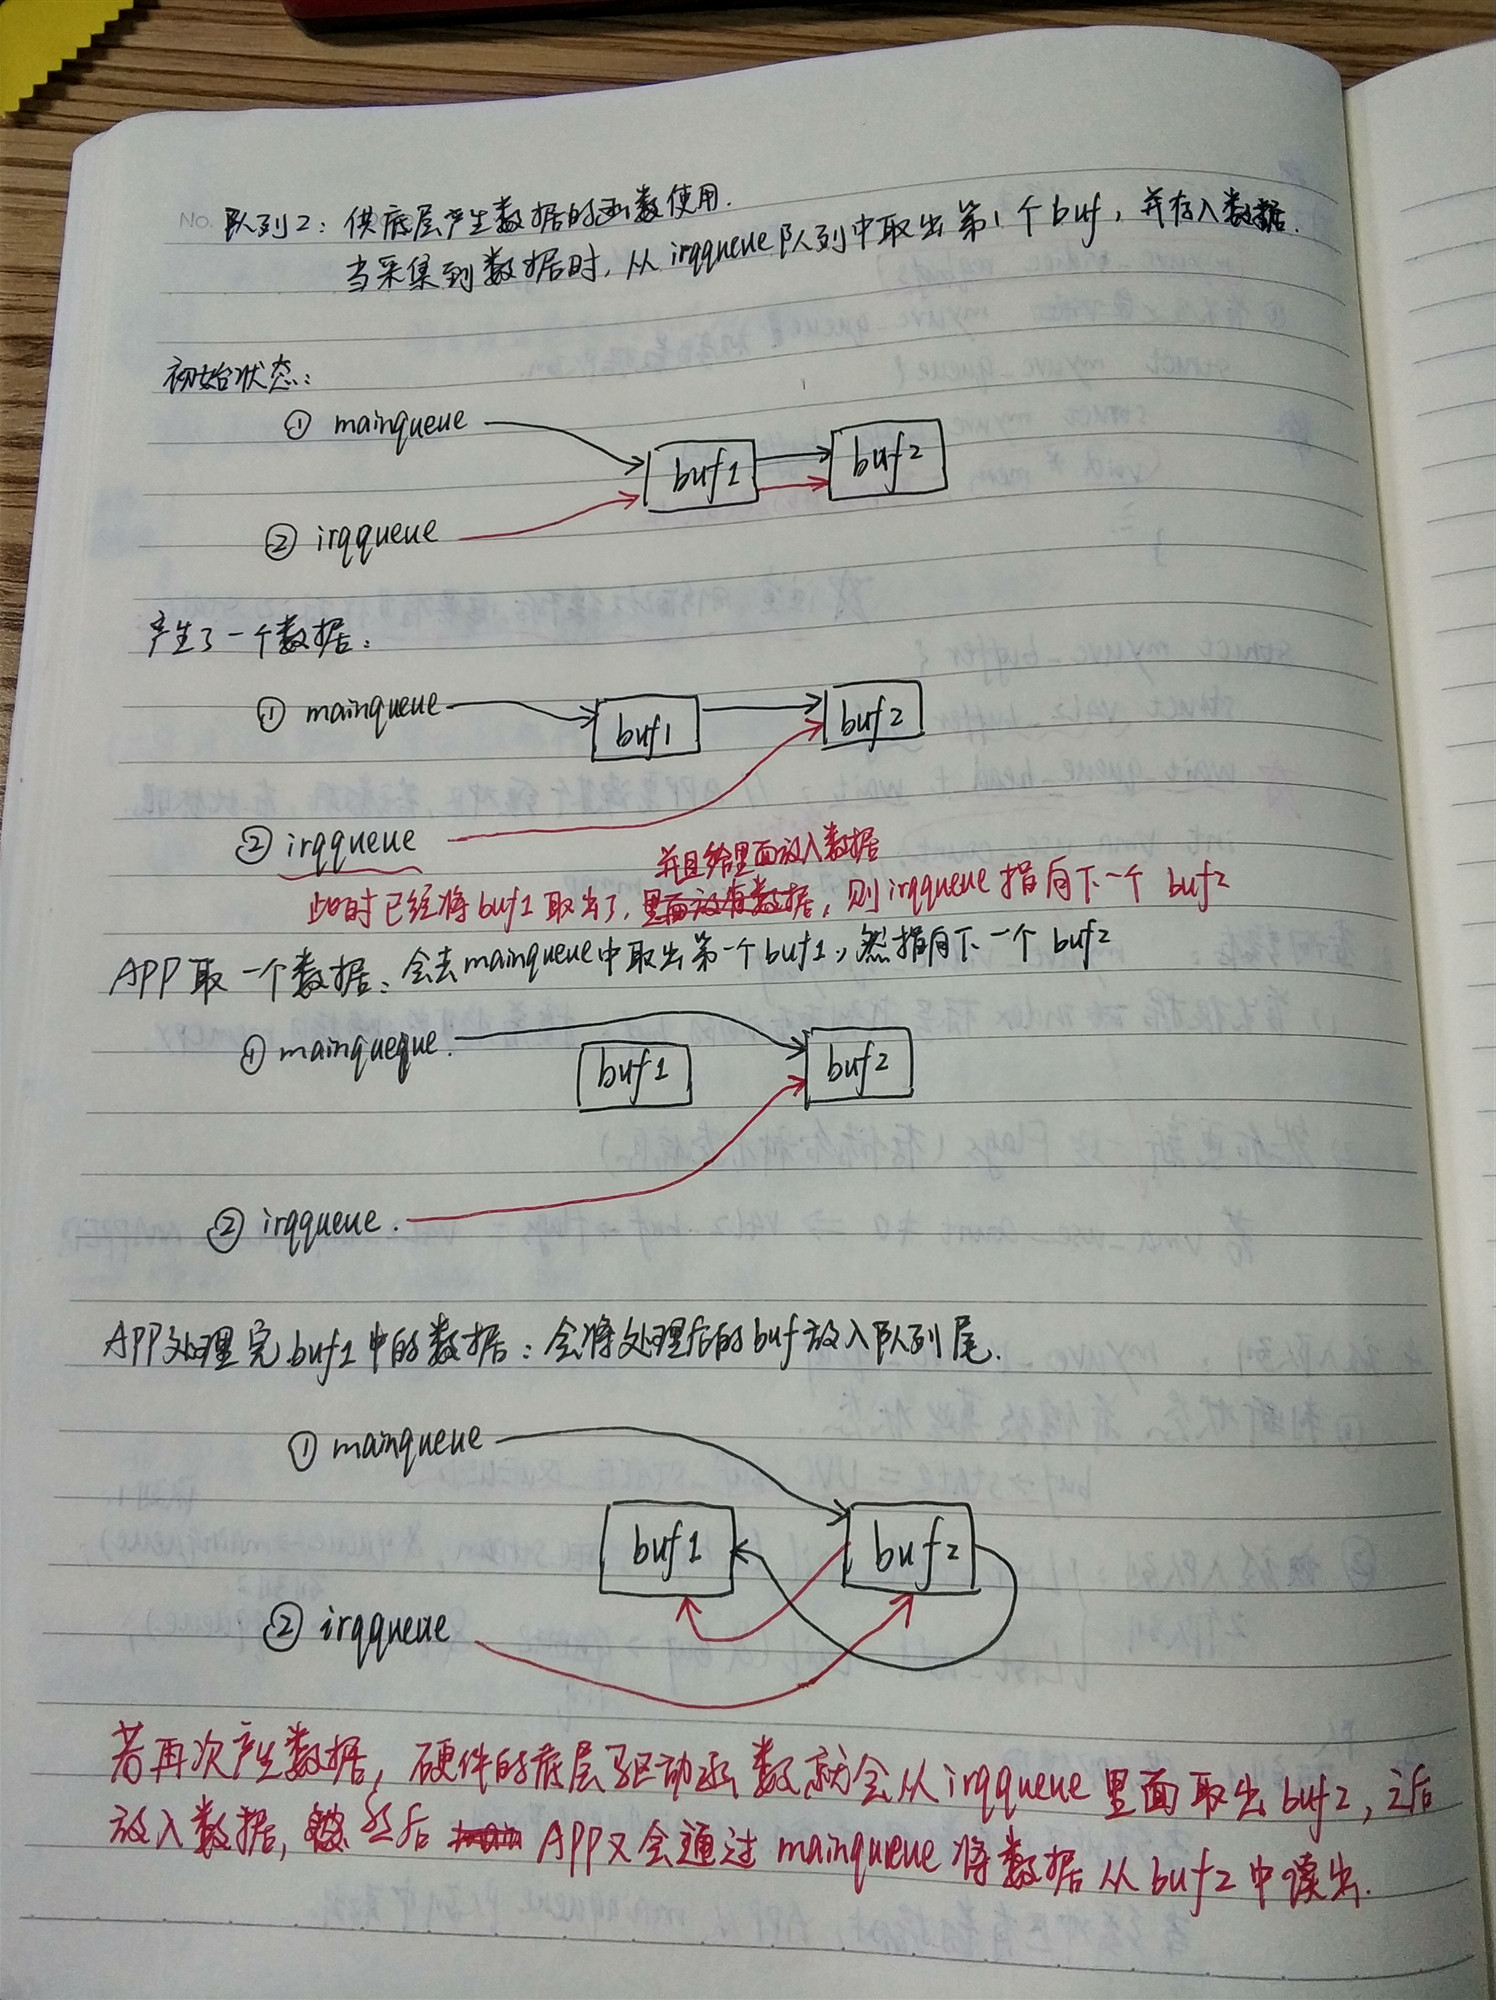 No. 队列2：供底层产生数据的函数使用.
当采集到数据时，从irqqueue队列中取出第1个buf，并存入数据.
初始状态：
① mainqueue
buf1
buf2
② irqqueue
产生了一个数据：
① mainqueue
buf1
buf2
② irqqueue
并且给里面放入数据
此时已经将buf1取出了，里面放有数据，则irqqueue指向下一个 buf2
APP取一个数据：会去mainqueue中取出第一个buf1，然指向下一个 buf2
① mainqueque
buf1
buf2
② irqqueue
APP处理完buf1中的数据：会将处理后的buf放入队列尾.
① mainqueue
buf1
buf2
② irqqueue
若再次产生数据，硬件的底层驱动函数就会从irqqueue里面取出buf2，之后
放入数据，然后 APP又会通过mainqueue将数据从buf2中读出.